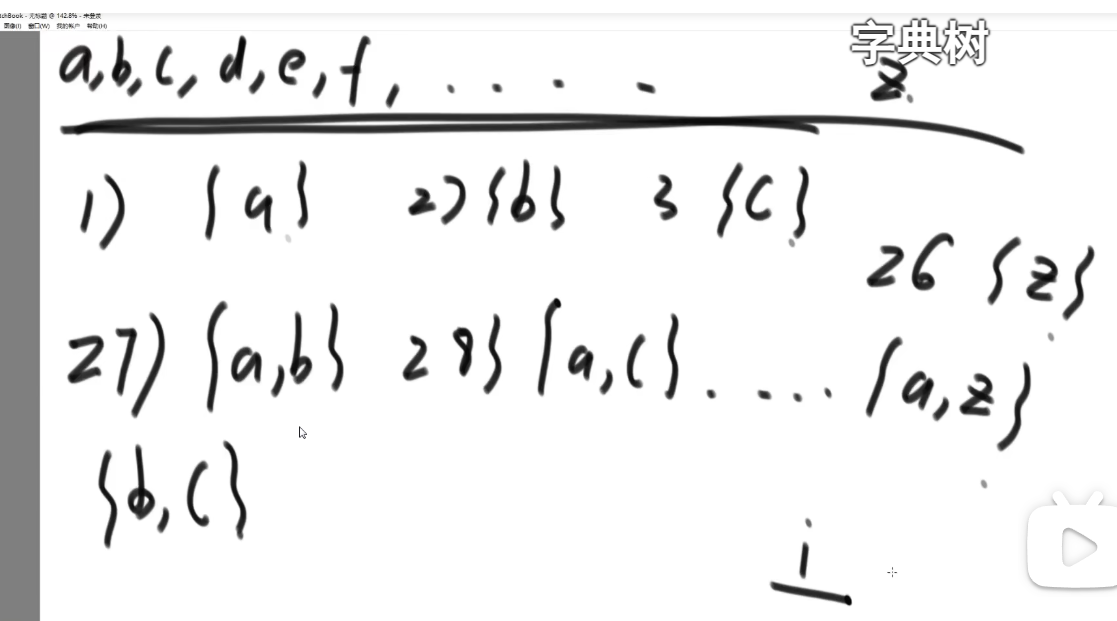 tchBook - 无标题 @ 142.8% - 未登录
图像(I) 窗口(W) 我的帐户 帮助(H)
字典树
a, b, c, d, e, f, . . . . z
1) {a} 2) {b} 3 {c}
26 {z}
27) {a,b} 28} {a,c} ..... {a,z}
{b,c}
i